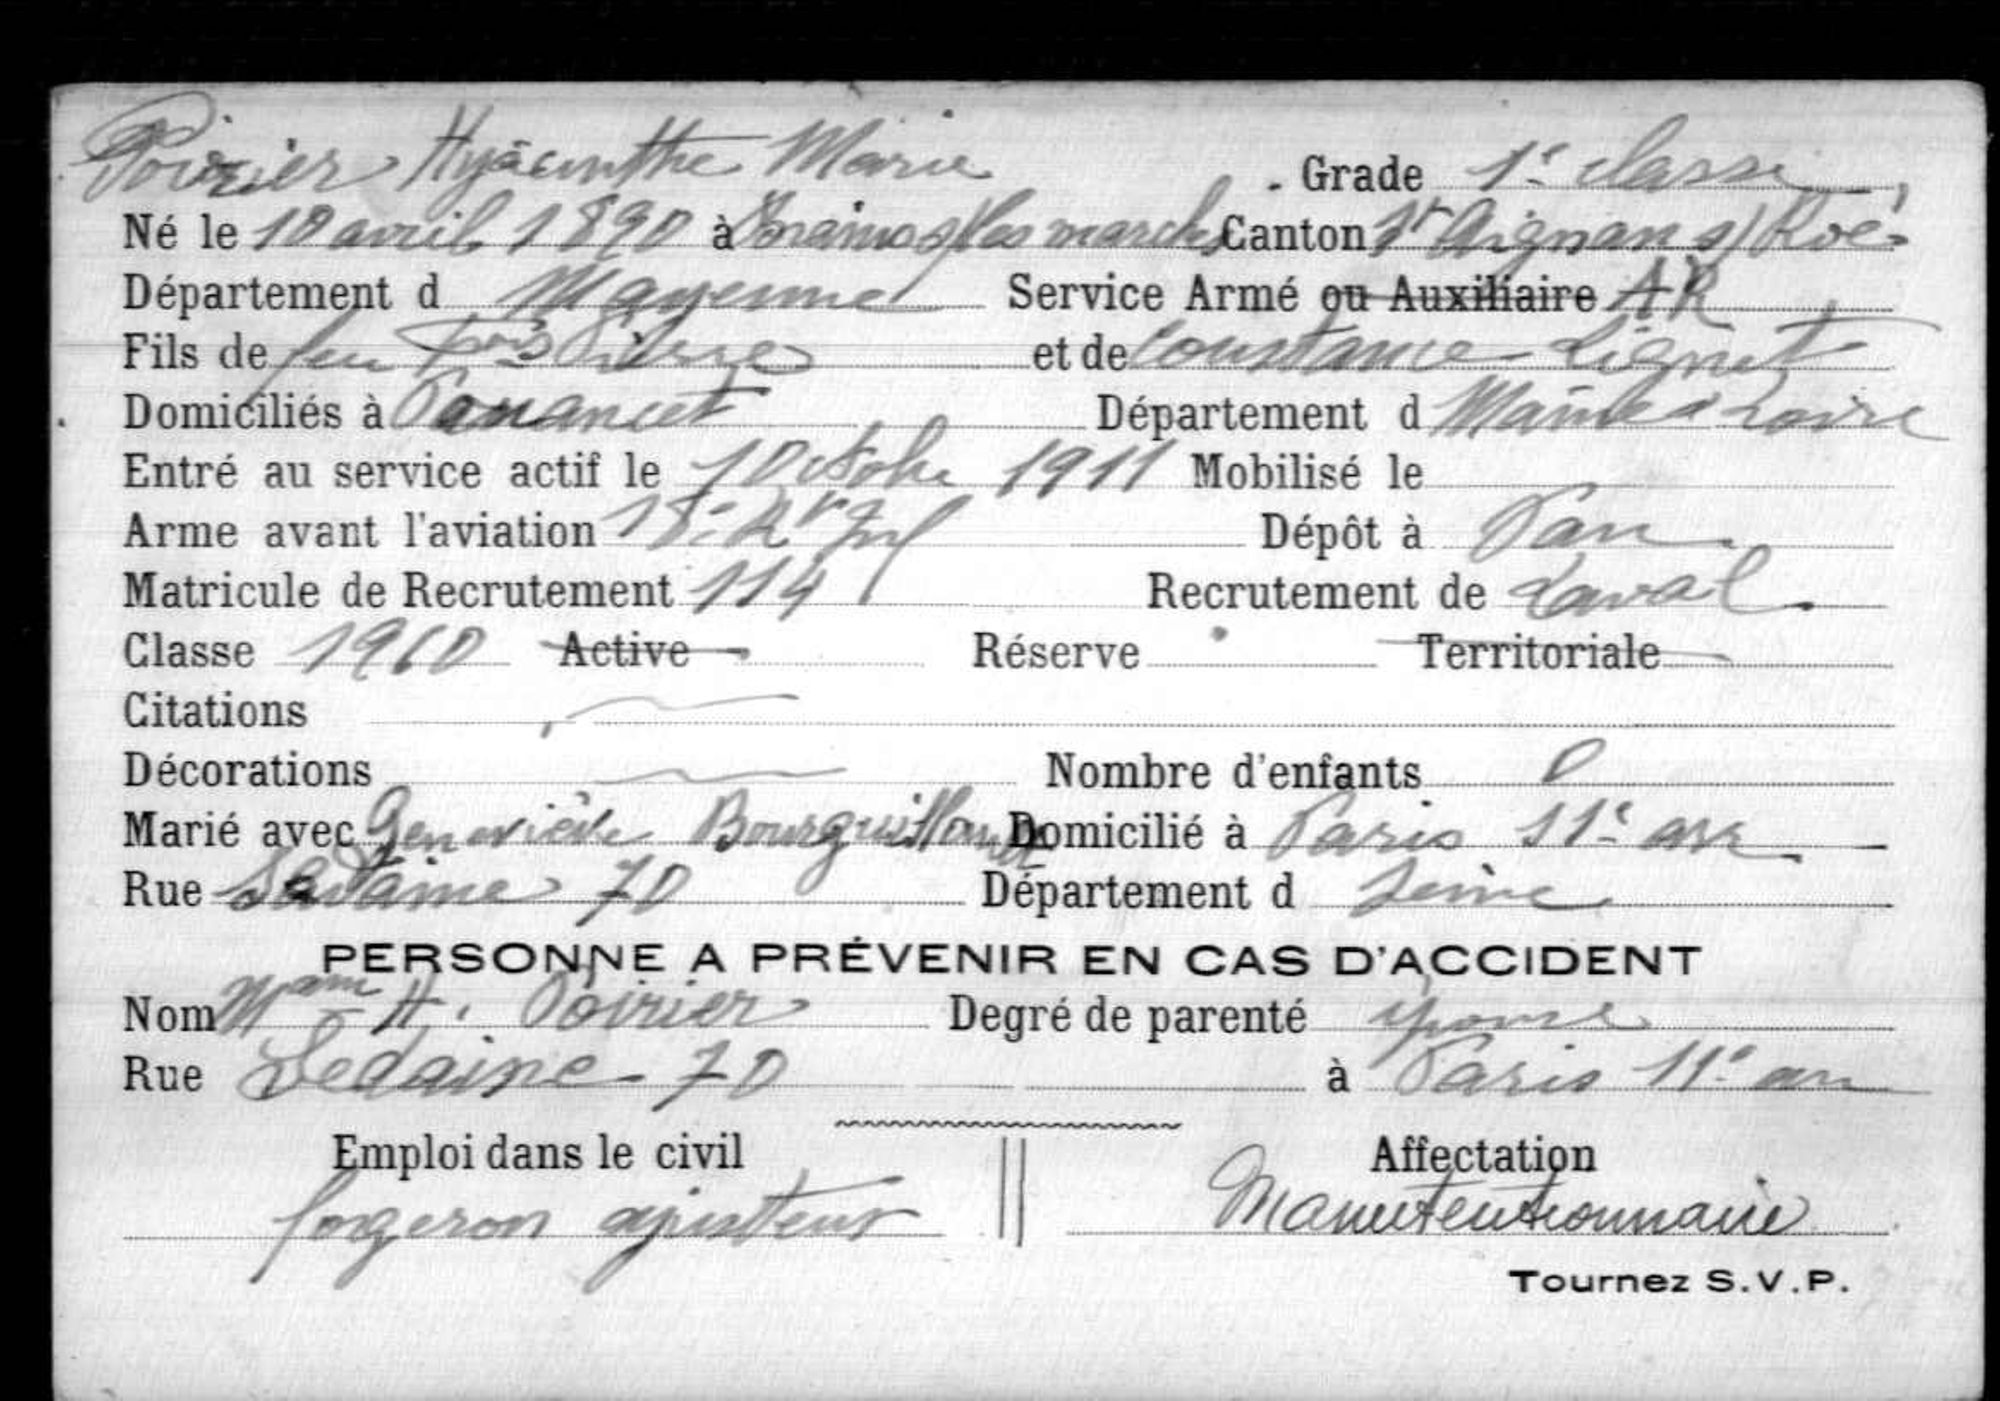 Poirier Hyacinthe Marie Grade 1e classe
Né le 10 avril 1890 à s/les marches Canton St Aignan s/ Roë
Département d Mayenne Service Armé ou Auxiliaire AR
Fils de feu Pierre et de Constance Lignet
Domiciliés à Pouancet Département d Maine & Loire
Entré au service actif le 1 Octobre 1911 Mobilisé le
Arme avant l'aviation Dépôt à Pau
Matricule de Recrutement 114 Recrutement de Laval
Classe 1910 Active Réserve Territoriale
Citations
Décorations Nombre d'enfants 0
Marié avec Geneviève Domicilié à Paris 11e arr
Rue Sedaine 70 Département d Seine
PERSONNE A PRÉVENIR EN CAS D'ACCIDENT
Nom Mame H. Poirier Degré de parenté épouse
Rue Sedaine 70 à Paris 11e arr
Emploi dans le civil Affectation
forgeron ajusteur Manutentionnaire
Tournez S.V.P.